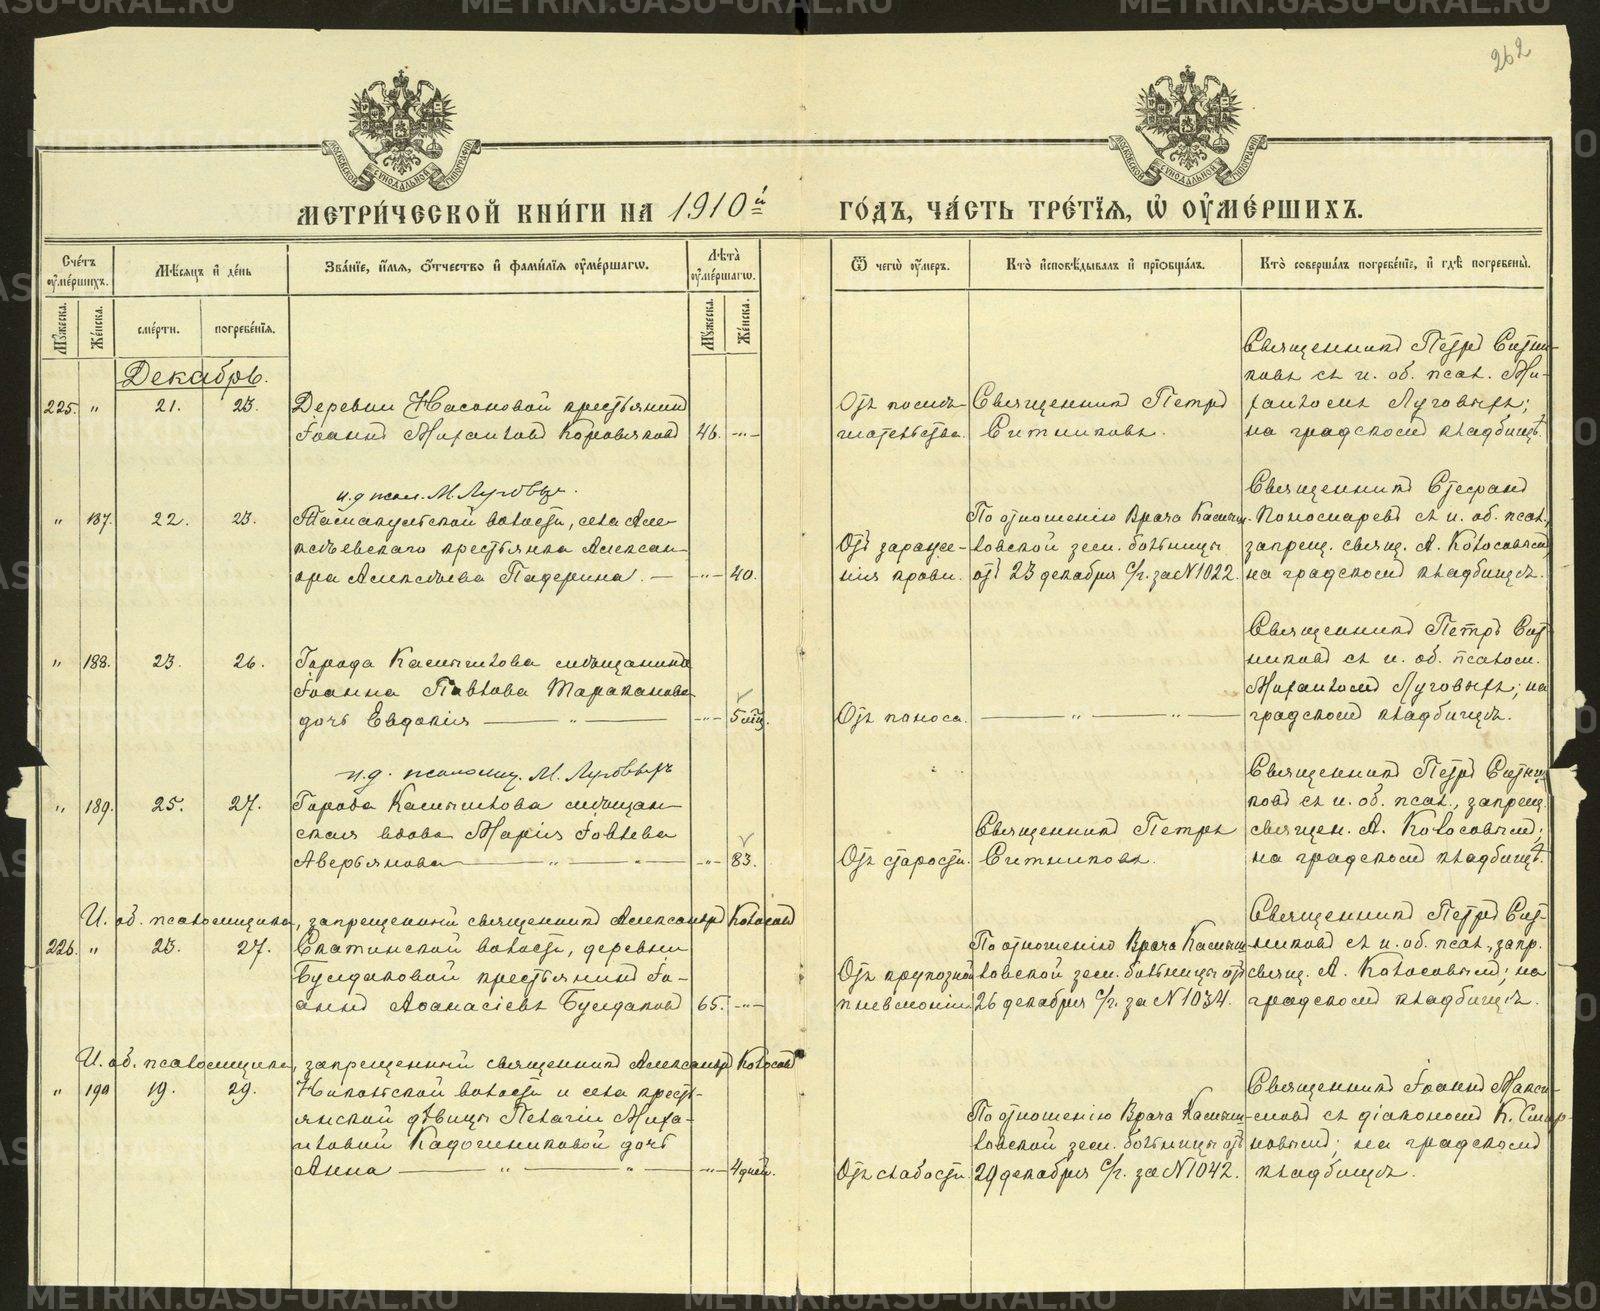 METRIKI.GASU-URAL.RU
262
МОСКОВСКОЙ СѴНОДАЛЬНОЙ ТИПОГРАФІИ
МОСКОВСКОЙ СѴНОДАЛЬНОЙ ТИПОГРАФІИ
МЕТРИ́ЧЕСКОЙ КНИ́ГИ НА 1910й ГО́ДЪ, ЧА́СТЬ ТРЕ́ТІЯ, Ѽ ОУ҆МЕ́РШИХЪ.
Сче́тъ оу҆ме́ршихъ.
Мѣ́сяцъ и҆ де́нь
Зва́ніе, и҆́мя, ѻ҆́тчество и҆ фами́лїя оу҆ме́ршагѡ.
Лѣ́та оу҆ме́ршагѡ.
Ѿ чегѡ̀ оу҆́меръ.
Кто̀ и҆сповѣ́дывалъ и҆ прїѡбща́лъ.
Кто̀ соверша́лъ погребе́нїе, и҆ гдѣ̀ погребены̀.
Мꙋ́жеска.
Же́нска.
сме́рти.
погребе́нїя.
Мꙋ́жеска.
Же́нска.
Декабрь.
225. " 21. 23.
Деревни Насоновой крестьянинъ
Іоаннъ Михаиловъ Коровяковъ 46. -"-
Священникъ Петръ
Ситниковъ.
Священникъ Петръ Ситни-
ковъ съ и. об. псал. Ми-
хаиломъ Луговыхъ;
на градскомъ кладбищѣ.
и.д. псал. М. Луговыхъ.
" 187. 22. 23.
волости, села Але-
ксѣевскаго крестьянка Алексан-
дра Алексѣева Падерина. — -"- 40.
Отъ зараже-
нія крови.
По отношенію Врача Камыш-
ловской зем. больницы
отъ 23 декабря с/г. за N 1022.
Священникъ Стефанъ
Пономаревъ съ и. об. псал.,
запрещ. свящ. А. Колосовымъ;
на градскомъ кладбищѣ.
" 188. 23. 26.
Города Камышлова мѣщанина
Іоанна Павлова Тараканова
дочь Евдокія — " — -"- 5 мѣц.
Отъ поноса. — " — " —
Священникъ Петръ Сит-
никовъ съ и. об. псалом.
Михаиломъ Луговыхъ; на
градскомъ кладбищѣ.
и.д. псаломщ. М. Луговыхъ
" 189. 25. 27.
Города Камышлова мѣщан-
ская вдова Марія Іовлева
Аверьянова — " — " — -"- 83.
Отъ старости.
Священникъ Петръ
Ситниковъ.
Священникъ Петръ Ситни-
ковъ съ и. об. псал., запрещ.
священ. А. Колосовымъ;
на градскомъ кладбищѣ.
И. об. псаломщика, запрещенный священникъ Александръ Колосовъ
226. " 23. 27.
Скатинской волости, деревни
Бундаковой крестьянинъ Іо-
аннъ Аѳанасіевъ Бундаковъ 65. -"-
Отъ крупозной
пневмоніи.
По отношенію Врача Камыш-
ловской зем. больницы отъ
26 декабря с/г. за N 1034.
Священникъ Петръ Сит-
никовъ съ и. об. псал., запр.
свящ. А. Колосовымъ; на
градскомъ кладбищѣ.
И. об. псаломщика, запрещенный священникъ Александръ Колосовъ
" 190 19. 29.
волости и села кресть-
янской дѣвицы Пелагіи Миха-
иловой Кадочниковой дочь
Анна — " — " — -"- 4 дней.
Отъ слабости.
По отношенію Врача Камыш-
ловской зем. больницы отъ
29 декабря с/г. за N 1042.
Священникъ Іоаннъ Макси-
мовъ съ діакономъ К. Смир-
новымъ; на градскомъ
кладбищѣ.